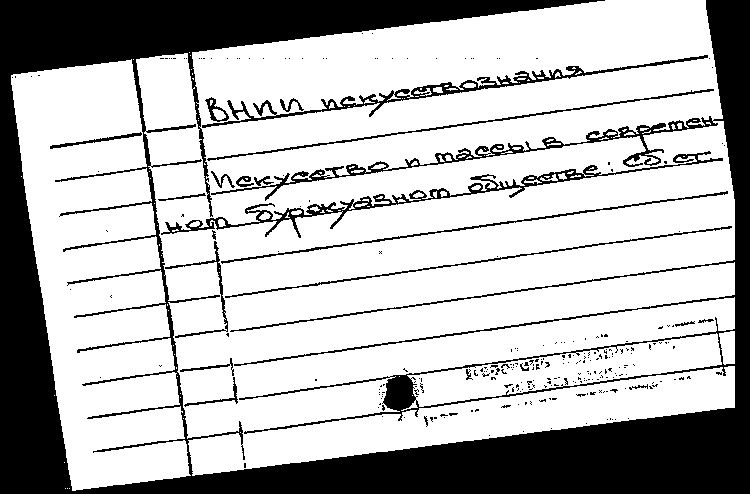 ВНИИ искусствознания
Искусство и массы в современ-
ном буржуазном обществе: Сб. ст.